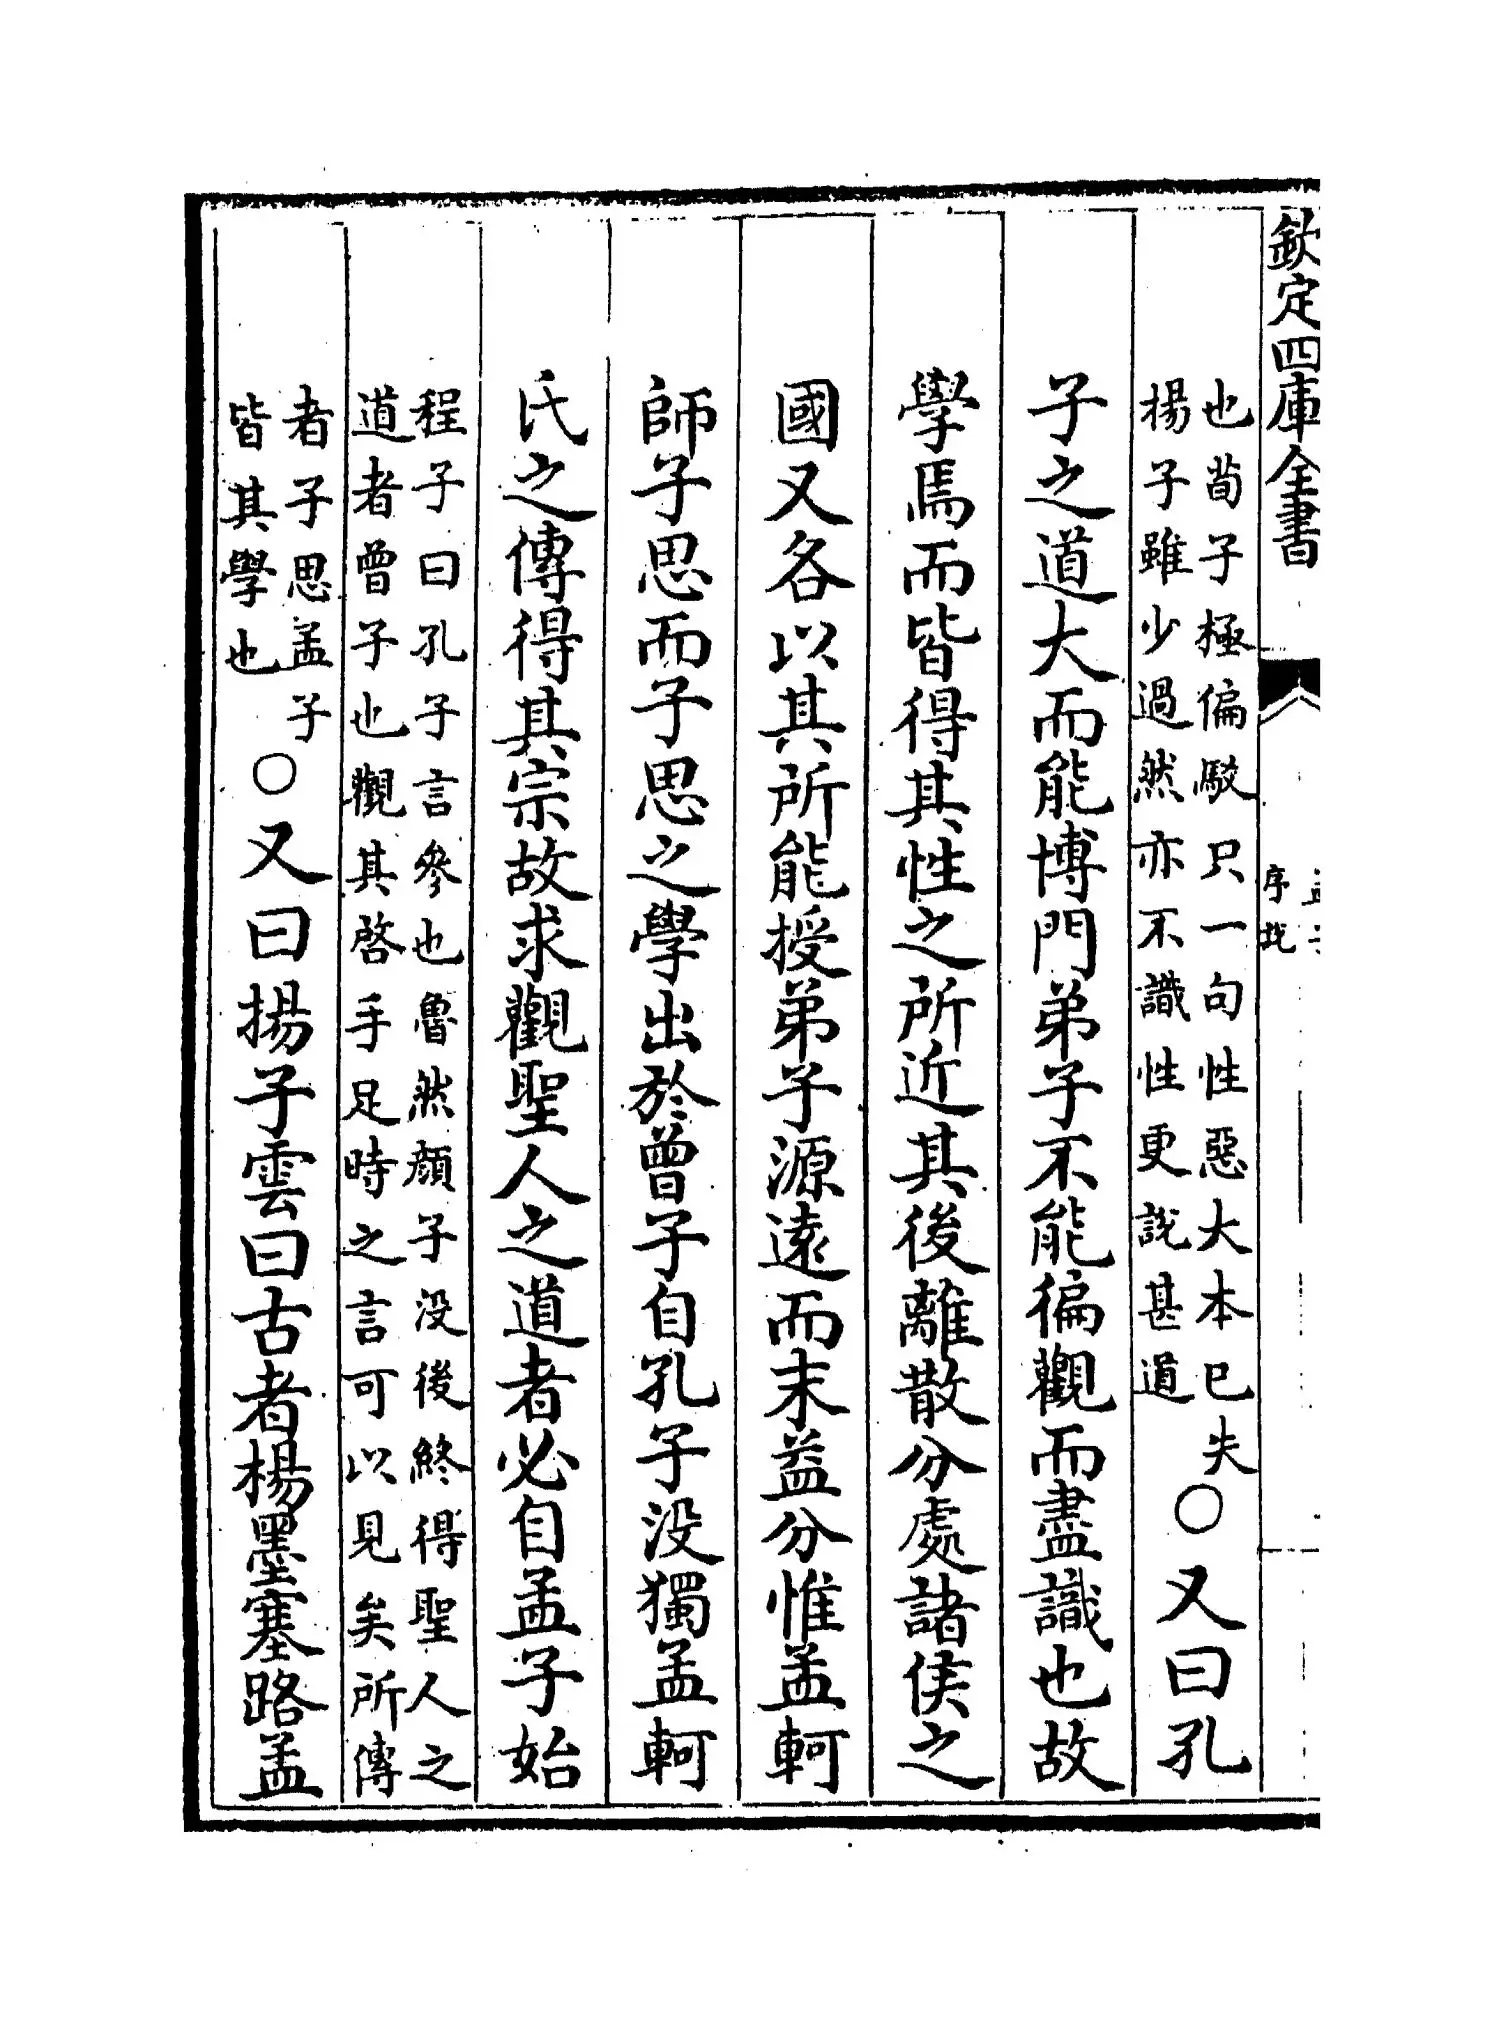 欽定四庫全書
序說
也荀子極偏駁只一句性惡大本已失
揚子雖少過然亦不識性更說甚道
○又曰孔
子之道大而能博門弟子不能徧觀而盡識也故
學焉而皆得其性之所近其後離散分處諸侯之
國又各以其所能授弟子源遠而末益分惟孟軻
師子思而子思之學出於曾子自孔子没獨孟軻
氏之傳得其宗故求觀聖人之道者必自孟子始
程子曰孔子言參也魯然顔子没後終得聖人之
道者曾子也觀其啓手足時之言可以見矣所傳
者子思孟子
皆其學也
○又曰揚子雲曰古者楊墨塞路孟